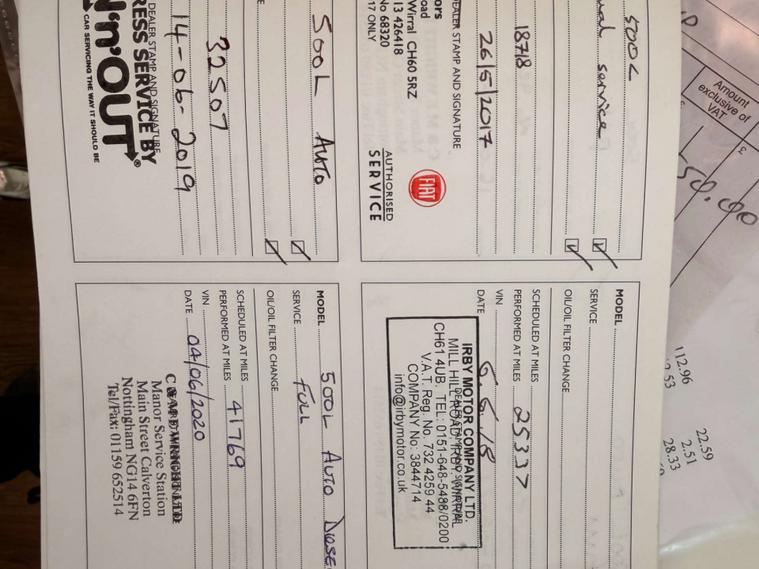 500L
service
18718
26/5/2017
DEALER STAMP AND SIGNATURE
Wirral CH60 5RZ
13 426418
No 68320
17 ONLY
FIAT
AUTHORISED
SERVICE
MODEL
SERVICE
OIL/OIL FILTER CHANGE
SCHEDULED AT MILES
PERFORMED AT MILES 25337
VIN
DATE 6.6.18
IRBY MOTOR COMPANY LTD.
MILL HILL ROAD, IRBY, WIRRAL
CH61 4UB. TEL: 0151-648-5488/0200
V.A.T. Reg. No. 732 4259 44
COMPANY No: 3844714
info@irbymotor.co.uk
500L Auto
32507
14-06-2019
DEALER STAMP AND SIGNATURE
RESS SERVICE BY
N'n'OUT®
CAR SERVICING THE WAY IT SHOULD BE
MODEL 500L Auto Diese
SERVICE FULL
OIL/OIL FILTER CHANGE
SCHEDULED AT MILES
PERFORMED AT MILES 41769
VIN
DATE 04/06/2020
Manor Service Station
Main Street Calverton
Nottingham NG14 6FN
Tel/Fax: 01159 652514
Amount
exclusive of
VAT
£
50.00
112.96
22.59
2.51
28.33